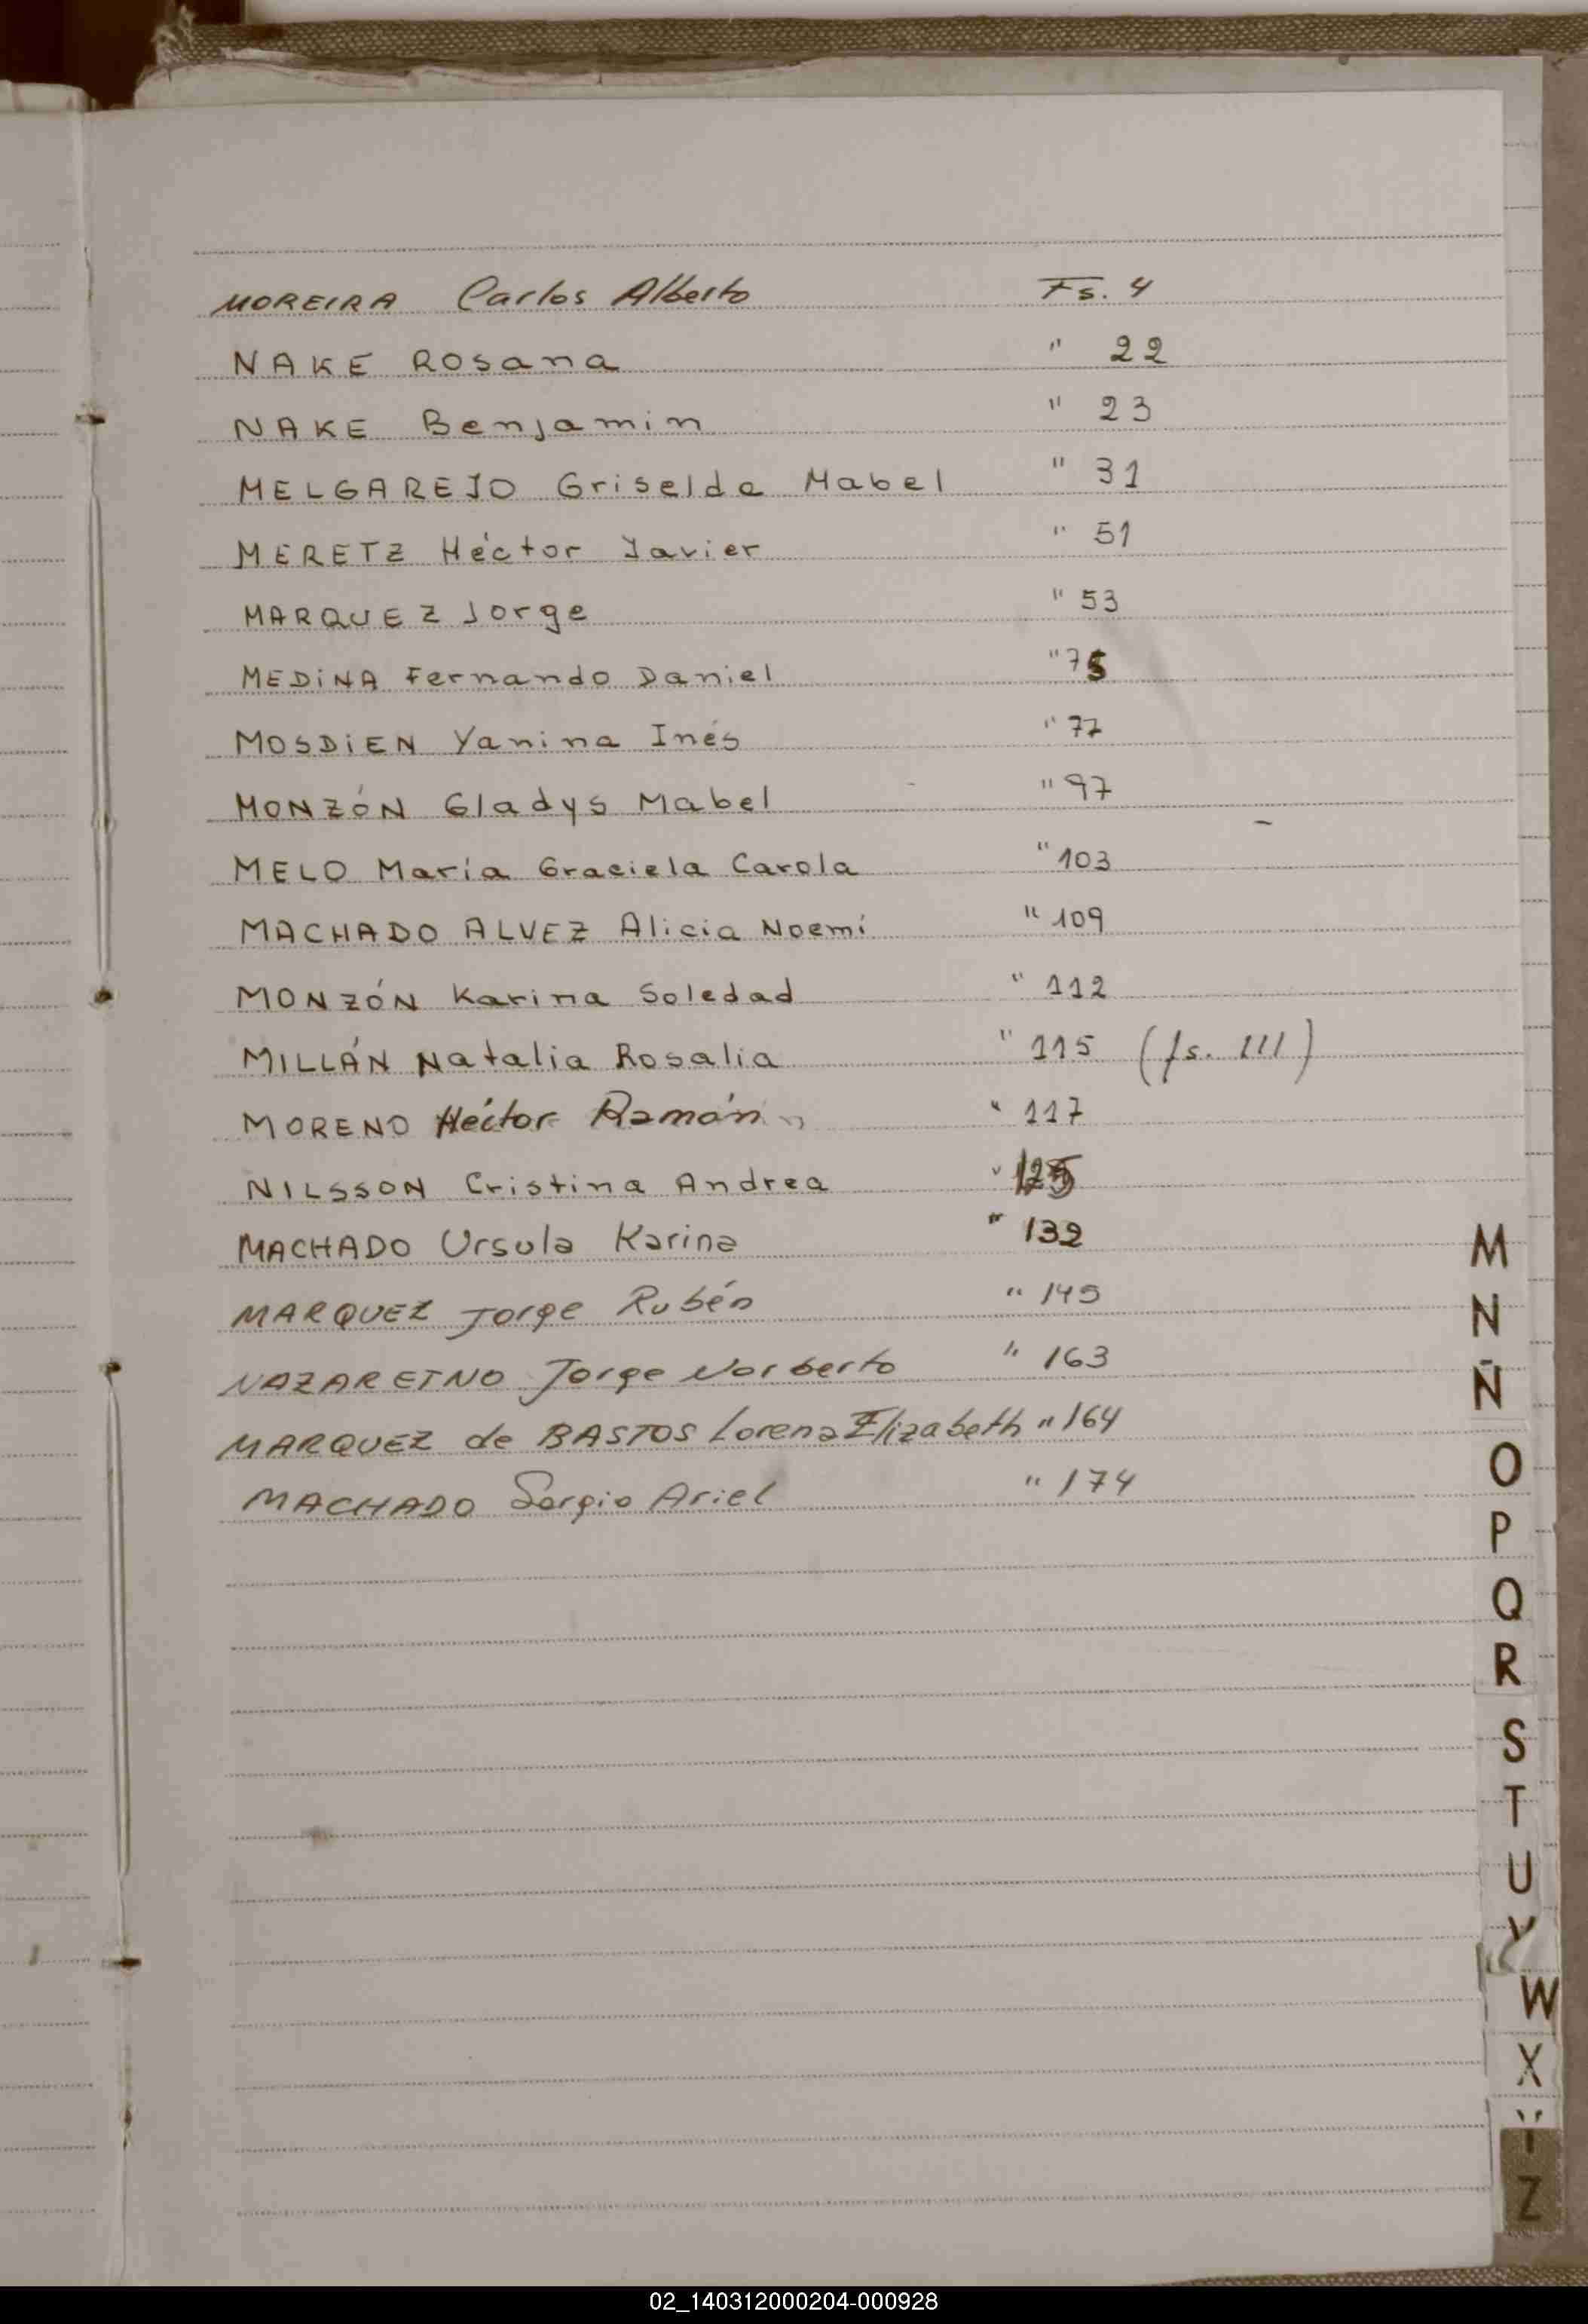 MOREIRA Carlos Alberto Fs. 4
NAKE Rosana " 22
NAKE Benjamin " 23
MELGAREJO Griselda Mabel " 31
MERETZ Héctor Javier " 51
MARQUEZ Jorge " 53
MEDINA Fernando Daniel " 75
MOSDIEN Yanina Inés " 77
MONZÓN Gladys Mabel " 97
MELO María Graciela Carola " 103
MACHADO ALVEZ Alicia Noemí " 109
MONZÓN Karina Soledad " 112
MILLÁN Natalia Rosalia " 115 (fs. III)
MORENO Héctor Ramón " 117
NILSSON Cristina Andrea "
MACHADO Ursula Karina " 132
MARQUEZ Jorge Rubén " 145
NAZARETNO Jorge Norberto " 163
MARQUEZ de BASTOS Lorena Elizabeth " 164
MACHADO Sergio Ariel " 174
M
N
Ñ
O
P
Q
R
S
T
U
V
W
X
Y
Z
02_140312000204-000928